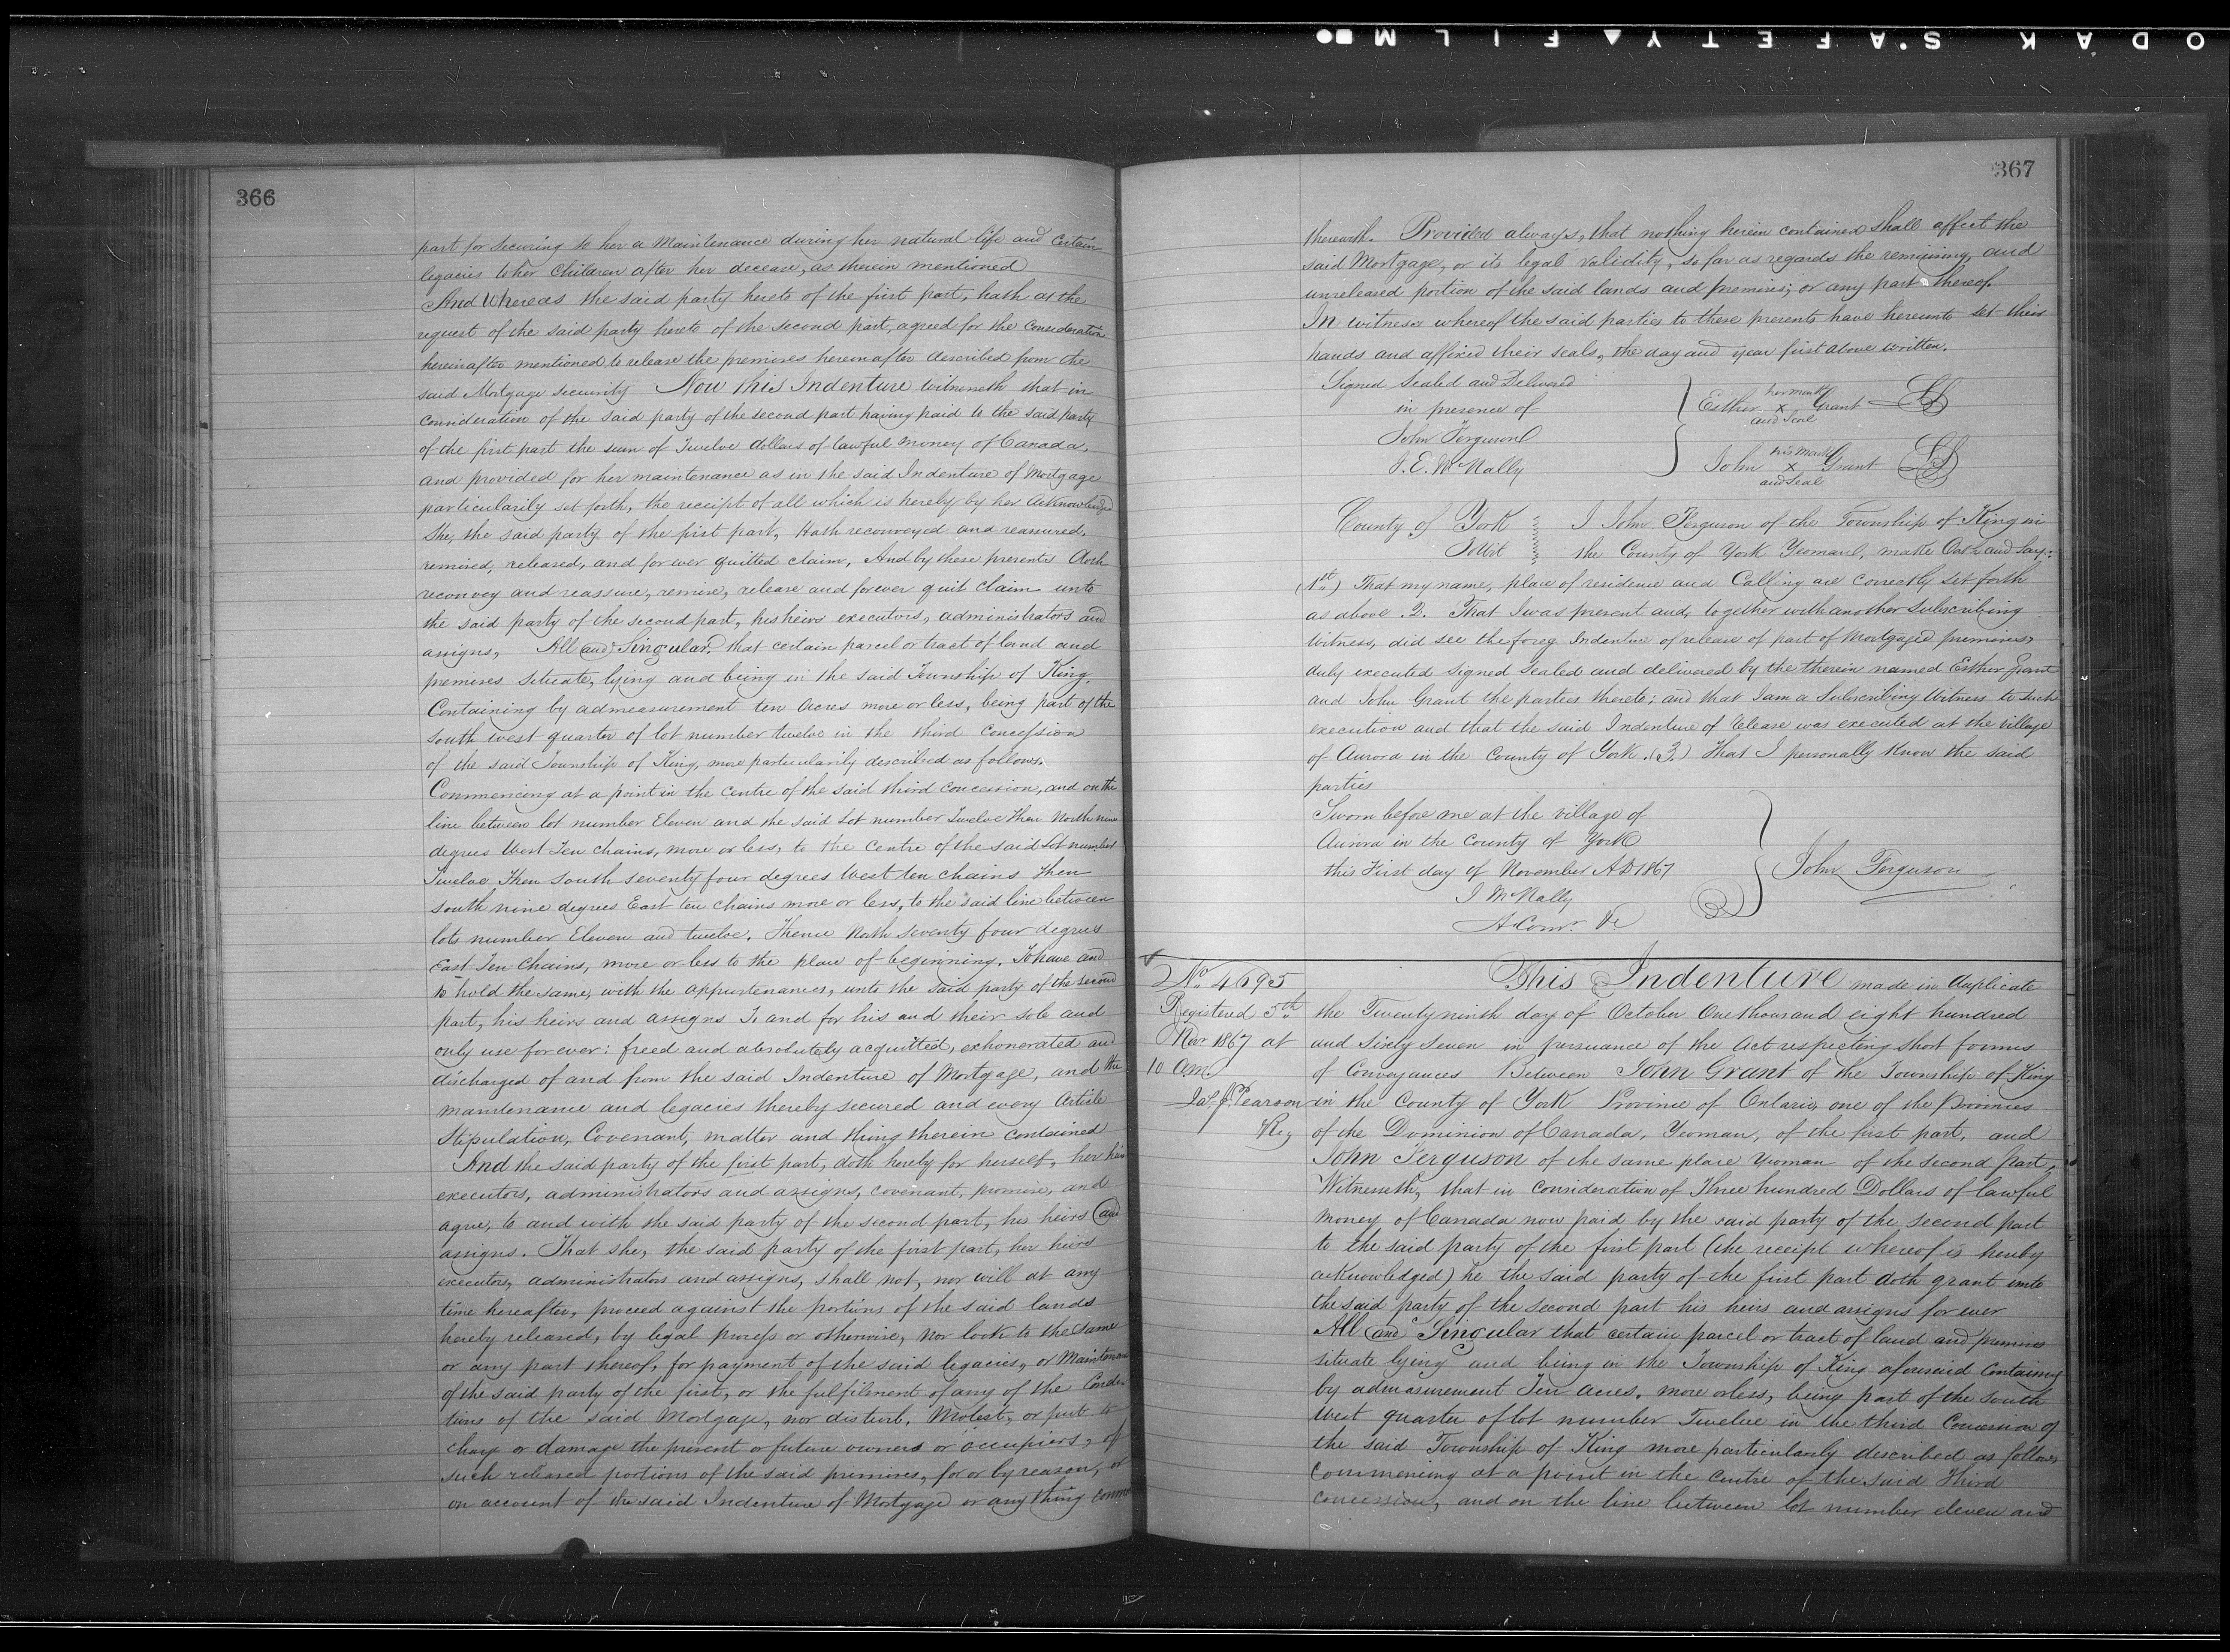 ODAK S'AFETY FILM
366
part for securing to her a Maintenance during her natural life and Certain
legacies to her Children after her decease, as therein mentioned
And Whereas the said party hereto of the first part, hath at the
request of the said party hereto of the second part, agreed for the Consideration
hereinafter mentioned to release the premises hereinafter described from the
said Mortgage security Now this Indenture witnesseth that in
consideration of the said party of the second part having paid to the said party
of the first part the sum of Twelve dollars of lawful money of Canada,
and provided for her maintenance as in the said Indenture of Mortgage
particularily set forth, the receipt of all which is hereby by her acknowledged
She, the said party of the first part, Hath reconveyed and reassured,
remised, released, and for ever quitted claim, And by these presents Doth
reconvey and reassure, remise, release and forever quit claim unto
the said party of the second part, his heirs executors, administrators and
assigns, All and Singular, that certain parcel or tract of land and
premises situate, lying and being in the said Township of King,
Containing by admeasurement ten Acres more or less, being part of the
South west quarter of lot number twelve in the third Concession
of the said Township of King, more particularily described as follows.
Commencing at a point in the centre of the said third concession, and on the
line between lot number Eleven and the said Lot number Twelve Then North nine
degrees West Ten chains, more or less, to the Centre of the said Lot number
Twelve Then South seventy four degrees West ten chains Then
South nine degrees East ten chains more or less, to the said line between
lots number Eleven and twelve. Thence North seventy four degrees
East Ten Chains, more or less to the place of beginning. To have and
to hold the same, with the appurtenances, unto the said party of the second
part, his heirs and assigns To and for his and their sole and
only use for ever: freed and absolutely acquitted, exhonerated and
discharged of and from the said Indenture of Mortgage, and the
maintenance and legacies thereby secured and every Article
Stipulation, Covenant, matter and thing therein contained
And the said party of the first part, doth hereby for herself, her heirs
executors, administrators and assigns, covenant, promise, and
agree, to and with the said party of the second part, his heirs and
assigns. That she, the said party of the first part, her heirs
executors, administrators and assigns, shall not, nor will at any
time hereafter, proceed against the portions of the said lands
hereby released, by legal process or otherwise, nor look to the same
or any part thereof, for payment of the said legacies, or Maintenance
of the said party of the first, or the fulfilment of any of the Condi-
tions of the said Mortgage, nor disturb, Molest, or put to
charge or damage the present or future owners or occupiers, of
such released portions of the said premises, for or by reason, or
on account of the said Indenture of Mortgage or any thing
367
therewith. Provided always, that nothing herein contained shall affect the
said Mortgage, or its legal validity, so far as regards the remaining, and
unreleased portion of the said lands and premises; or any part thereof.
In witness whereof the said parties to these presents have hereunto set their
hands and affixed their seals, the day and year first above written.
Signed Sealed and Delivered
in presence of
John Ferguson
J. E. McNally
her mark
Esther x Grant LS
and Seal
his mark
John x Grant LS
and Seal
County of York I John Ferguson of the Township of King in
To Wit the County of York Yeoman, make Oath and say:
(1st) That my name, place of residence and Calling are correctly set forth
as above. 2. That I was present and, together with another Subscribing
Witness, did see the foreg Indenture of release of part of Mortgaged premises,
duly executed signed Sealed and delivered by the therein named Esther Grant
and John Grant the parties thereto; and that I am a Subscribing Witness to such
execution and that the said Indenture of Release was executed at the village
of Aurora in the County of York. (3.) That I personally know the said
parties
Sworn before me at the village of
Aurora in the County of York
this First day of November AD 1867
J McNally
A Comr. &c
John Ferguson
No. 4695
Registered 5th
Nov 1867 at
10 am
Jas. J. Pearson
Reg
This Indenture made in duplicate
the Twenty ninth day of October One thousand eight hundred
and Sixty Seven in persuance of the Act respecting Short formes
of Conveyances Between John Grant of the Township of King
in the County of York Province of Ontario, one of the Provinces
of the Dominion of Canada, Yeoman, of the first part, and
John Ferguson of the same place Yeoman of the second part,
Witnesseth, that in consideration of Three hundred Dollars of lawful
money of Canada now paid by the said party of the second part
to the said party of the first part (the receipt whereof is hereby
acknowledged) he the said party of the first part doth grant unto
the said party of the second part his heirs and assigns for ever
All and Singular that certain parcel or tract of land and premises
situate lying and being in the Township of King aforesaid Containing
by admeasurement Ten acres, more or less, being part of the South
West quarter of lot number Twelve in the third Concession of
the said Township of King more particularly described as follows
Commencing at a point in the Centre of the said Third
concession, and on the line between lot number eleven and